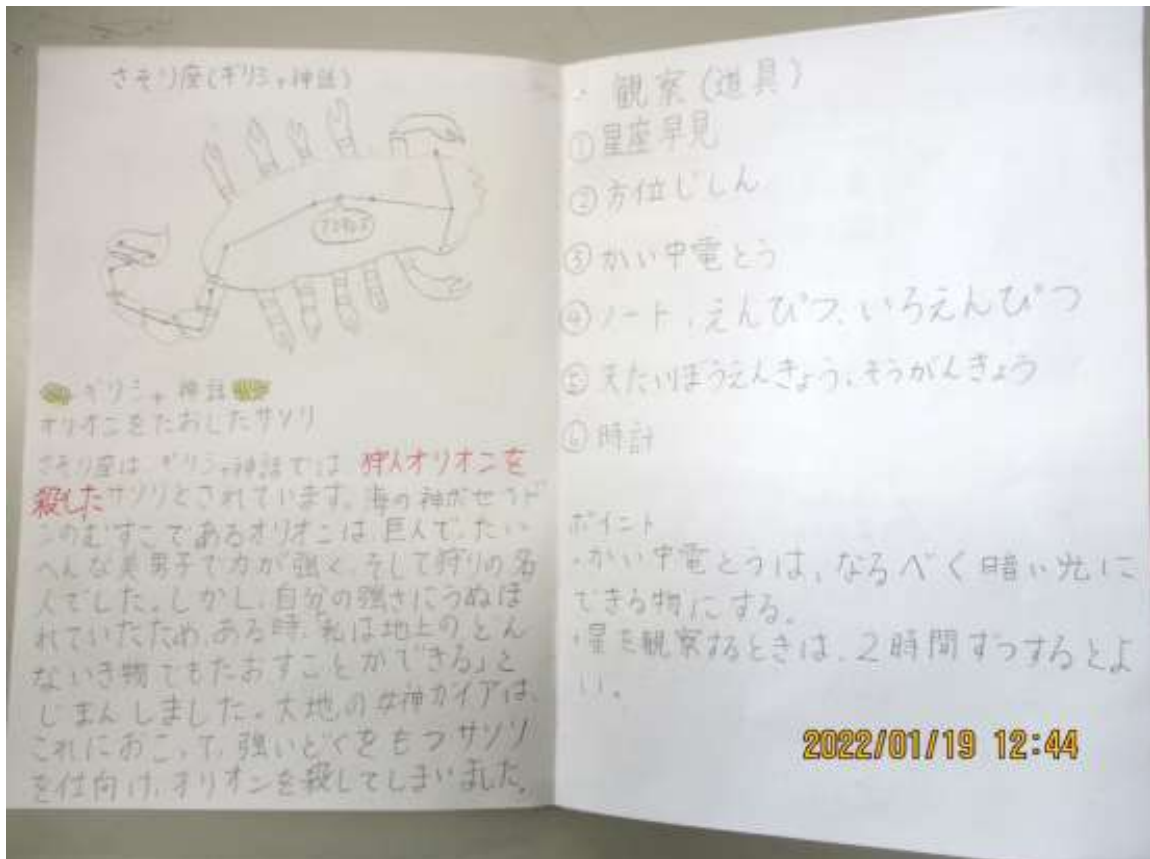 さそり座(ギリシャ神話)
アンタレス
ギリシャ神話
オリオンをたおしたサソリ
さそり座は、ギリシャ神話では、狩人オリオンを
殺したサソリとされています。海の神ポセイド
ンのむすこであるオリオンは、巨人で、たい
へんな美男子で力が強く、そして狩りの名
人でした。しかし、自分の強さにうぬぼ
れていたため、ある時、「私は地上のどん
ないき物でもたおすことができる」と
じまんしました。大地の女神ガイアは、
これにおこって、強いどくをもつサソリ
を仕向け、オリオンを殺してしまいました。
・観察(道具)
①星座早見
②方位じしん
③かい中電とう
④ノート、えんぴつ、いろえんぴつ
⑤天たいぼうえんきょう、そうがんきょう
⑥時計
ポイント
・かい中電とうは、なるべく暗い光に
できる物にする。
・星を観察するときは、2時間ずつするとよ
い。
2022/01/19 12:44